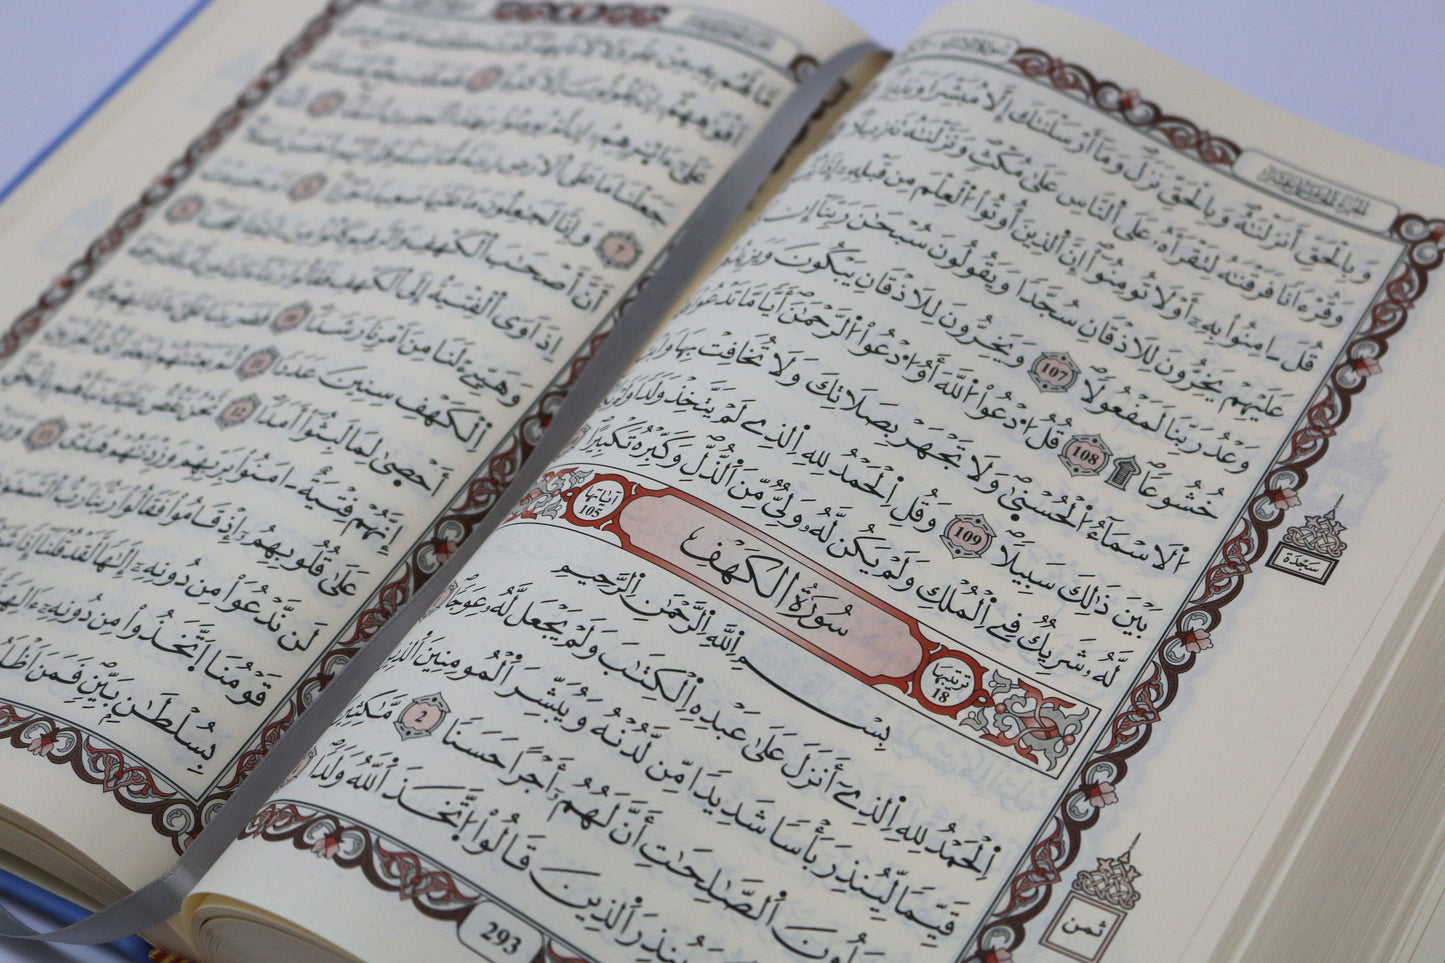 الجزء الخامس عشر
وَبِالْحَقِّ أَنزَلْنَٰهُ وَبِالْحَقِّ نَزَلَ وَمَآ أَرْسَلْنَٰكَ إِلَّا مُبَشِّرًا
وَقُرْءَانًا فَرَقْنَٰهُ لِتَقْرَأَهُۥ عَلَى اَلنَّاسِ عَلَىٰ مُكْثٍ وَنَزَّلْنَٰهُ تَنزِيلًا
قُلَ ـ امِنُوا۟ بِهِۦٓ أَوْ لَا تُومِنُوٓا۟ إِنَّ اَلذِينَ أُوتُوا۟ اُلْعِلْمَ مِن قَبْلِهِۦٓ إِذَا
عَلَيْهِمْ يَخِرُّونَ لِلَاذْقَانِ سُجَّدًا وَيَقُولُونَ سُبْحَٰنَ رَبِّنَآ إِن
وَعْدُ رَبِّنَا لَمَفْعُولًا 107 وَيَخِرُّونَ لِلَاذْقَانِ يَبْكُونَ وَيَزِيدُهُمْ
خُشُوعًا 108 قُلُ اُدْعُوا۟ اُللَّهَ أَوُ اُدْعُوا۟ اُلرَّحْمَٰنَ أَيًّا مَّا تَدْعُوا۟
اُلَاسْمَآءُ اُلْحُسْنَىٰ وَلَا تَجْهَرْ بِصَلَاتِكَ وَلَا تُخَافِتْ بِهَا وَابْتَغِ
بَيْنَ ذَٰلِكَ سَبِيلًا 109 وَقُلِ اِلْحَمْدُ لِلهِ اِلذِے لَمْ يَتَّخِذْ وَلَدًا وَلَمْ
لَّهُۥ شَرِيكٌ فِے اِلْمُلْكِ وَلَمْ يَكُن لَّهُۥ وَلِيٌّ مِّنَ اَلذُّلِّ وَكَبِّرْهُ تَكْبِيرًا
سَجْدَة
ترتيبها 18
سُورَةُ الْكَهْفِ
آياتها 105
بِسْمِ اِللَّهِ اِلرَّحْمَٰنِ اِلرَّحِيمِ
اِلْحَمْدُ لِلهِ اِلذِےٓ أَنزَلَ عَلَىٰ عَبْدِهِ اِلْكِتَٰبَ وَلَمْ يَجْعَل لَّهُۥ عِوَجًا
قَيِّمًا لِّيُنذِرَ بَأْسًا شَدِيدًا مِّن لَّدُنْهُ وَيُبَشِّرَ اَلْمُومِنِينَ اَلذِينَ
يَعْمَلُونَ اَلصَّٰلِحَٰتِ أَنَّ لَهُمُۥٓ أَجْرًا حَسَنًا 2 مَّٰكِثِينَ
وَيُنذِرَ اَلذِينَ قَالُوا۟ اُتَّخَذَ اَللَّهُ وَلَدًا
ثمن
293
مَا لَهُم بِهِۦ مِنْ عِلْمٍ وَلَا
أَفْوَٰهِهِمُۥٓ إِنْ يَّقُولُونَ إِلَّا كَذِبًا
عَلَىٰٓ ءَاثَٰرِهِمُۥٓ إِن لَّمْ يُومِنُوا۟ بِهَٰذَا اَلْحَدِيثِ
جَعَلْنَا مَا عَلَى اَلَارْضِ زِينَةً لَّهَا
7 وَإِنَّا لَجَٰعِلُونَ مَا عَلَيْهَا صَعِيدًا جُرُزًا 8
أَنَّ أَصْحَٰبَ اَلْكَهْفِ وَالرَّقِيمِ كَانُوا۟ مِنَ
إِذَ اَوَى اَلْفِتْيَةُ إِلَى اَلْكَهْفِ فَقَالُوا۟ رَبَّنَآ
وَهَيِّۓْ لَنَا مِنَ اَمْرِنَا رَشَدًا 10 فَضَرَبْنَا عَلَىٰٓ ءَاذَانِهِمْ فِے
اِلْكَهْفِ سِنِينَ عَدَدًا 11 ثُمَّ بَعَثْنَٰهُمْ
أَحْصَىٰ لِمَا لَبِثُوٓا۟ أَمَدًا 12 نَّحْنُ نَقُصُّ عَلَيْكَ نَبَأَهُم بِالْحَقِّ
إِنَّهُمْ فِتْيَةٌ ـ امَنُوا۟ بِرَبِّهِمْ وَزِدْنَٰهُمْ هُدًى 13
عَلَىٰ قُلُوبِهِمُۥٓ إِذْ قَامُوا۟ فَقَالُوا۟ رَبُّنَا رَبُّ اُلسَّمَٰوَٰتِ
لَن نَّدْعُوَا۟ مِن دُونِهِۦٓ إِلَٰهًا لَّقَدْ قُلْنَآ إِذًا
قَوْمُنَا اَتَّخَذُوا۟ مِن دُونِهِۦٓ ءَالِهَةً
بِسُلْطَٰنٍۭ بَيِّنٍ فَمَنَ اَظْلَمُ